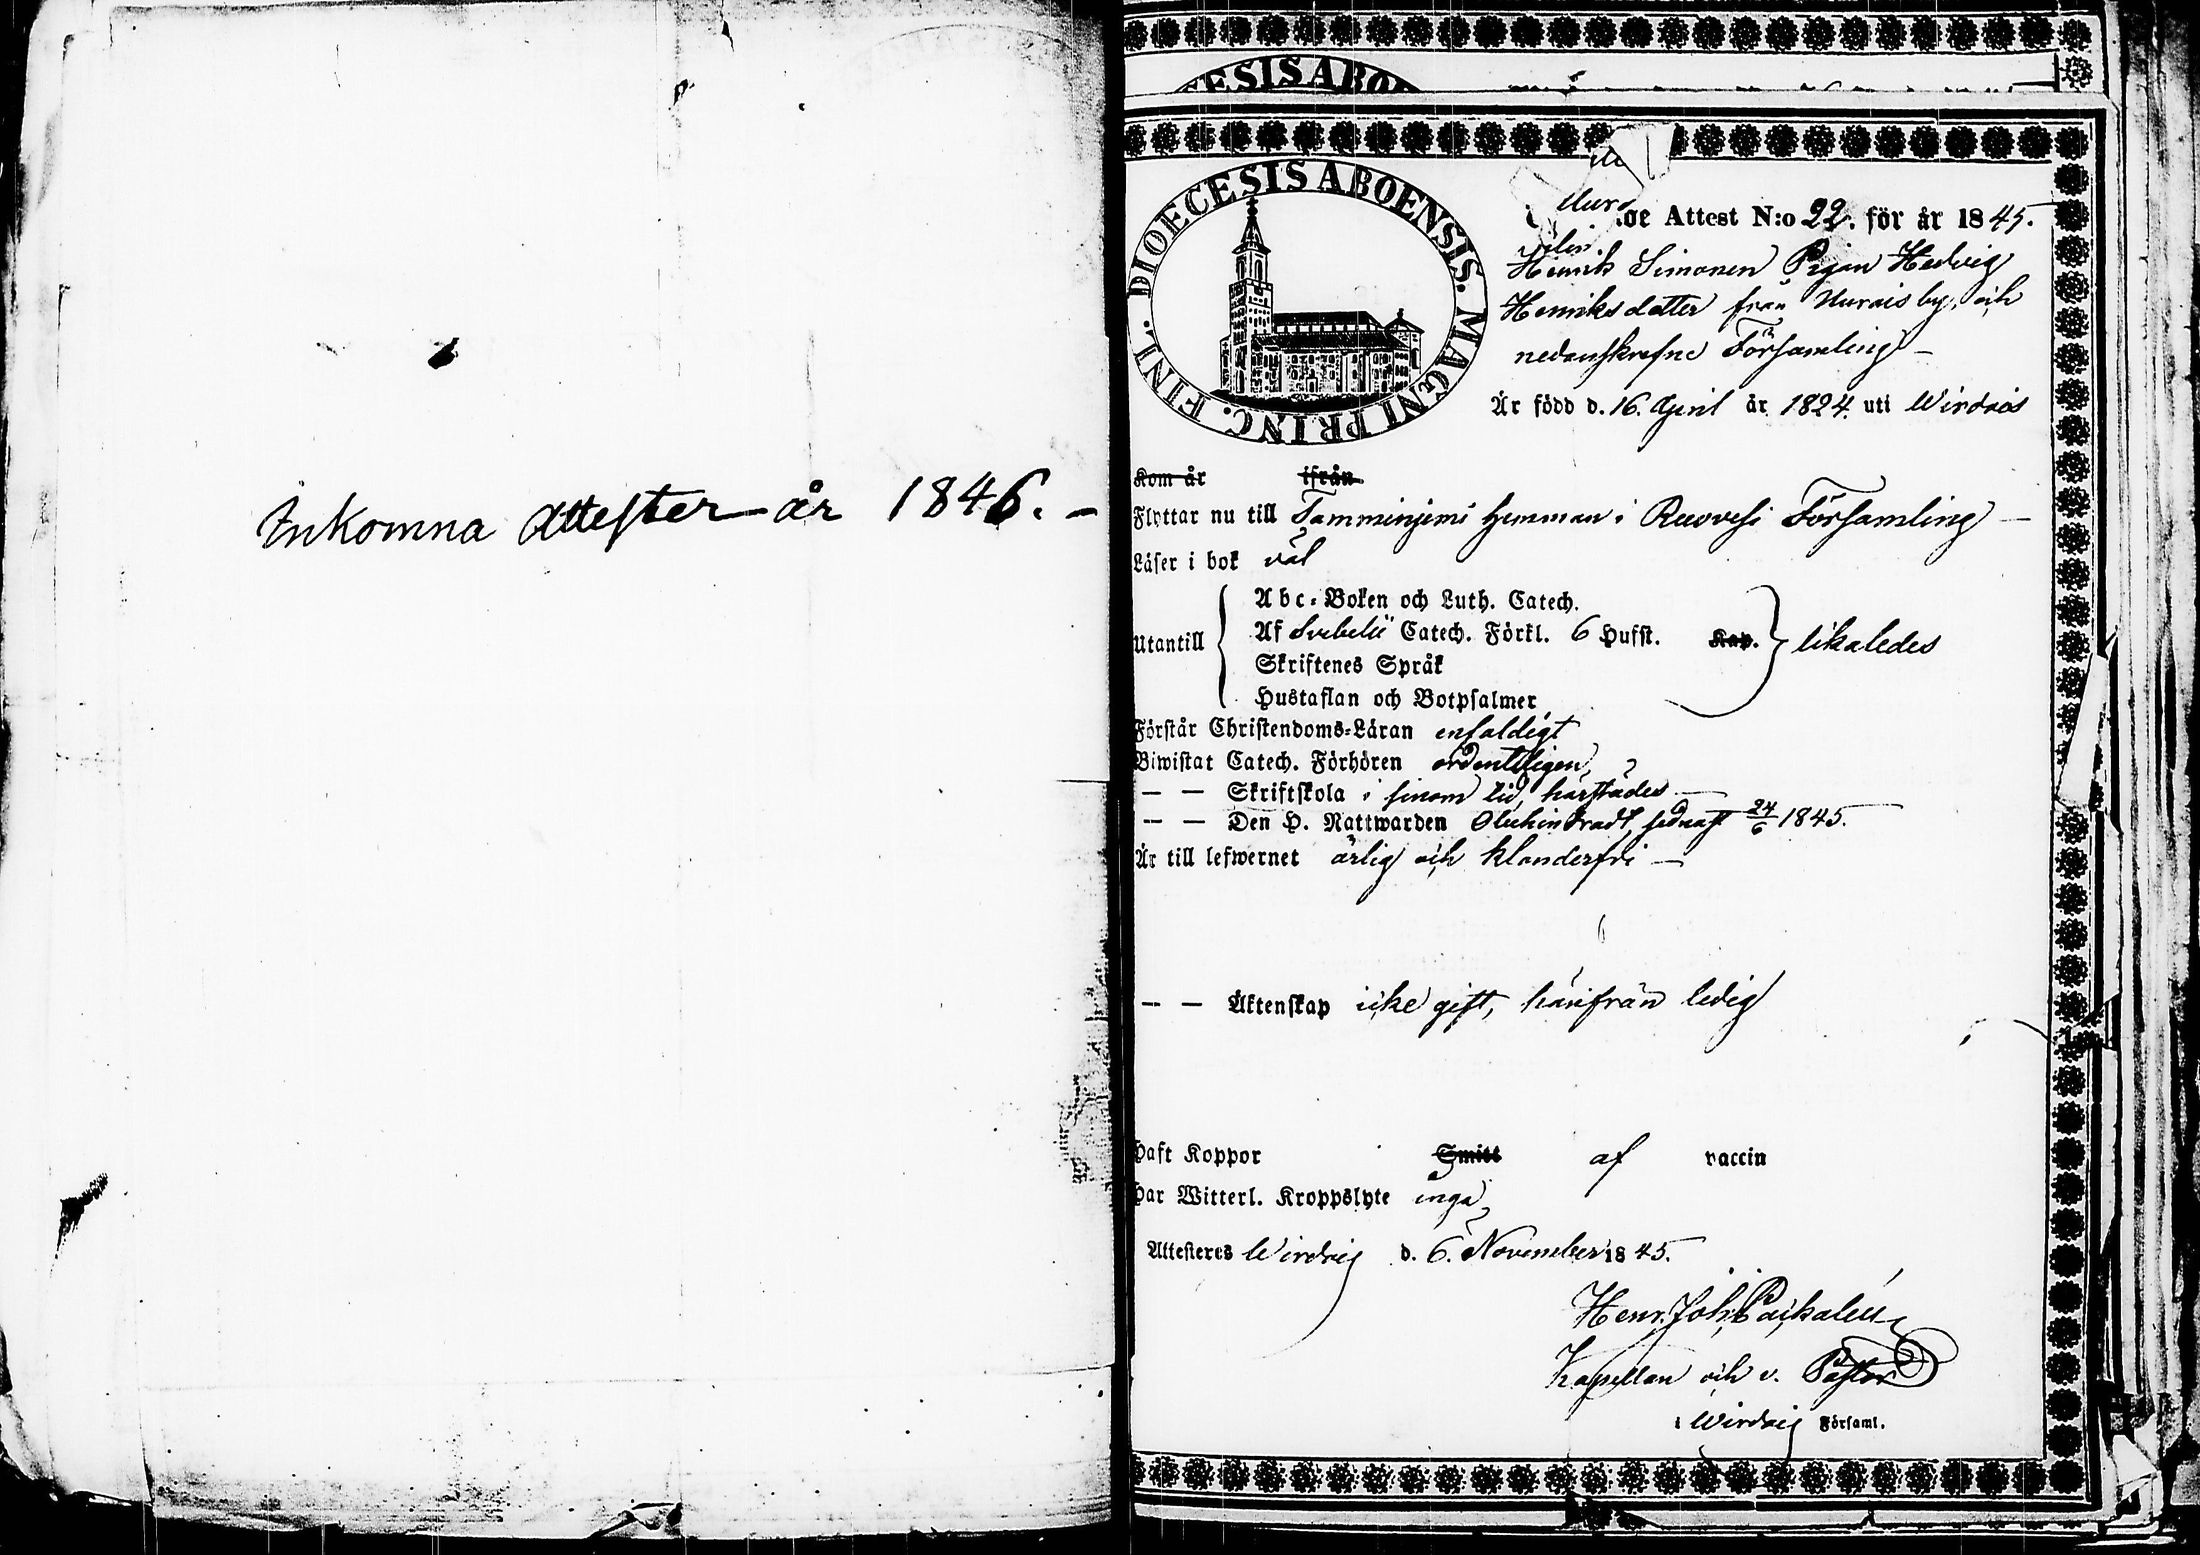 Inkomna Attester år 1846. -
ESIS ABO
DIOECESIS ABOENSIS. MAGNI PRINC. FINL.
Attest N:o 22. för år 1845.
Henrik Simonen Pigan Hedvig
Henriksdotter från Murais by, och
nedanskrefne Församling -
Är född d. 16. April år 1824. uti Wirdois
Kom år ifrån
Flyttar nu till Tamminjemi hemman i Ruovesi Församling -
Läser i bok väl
Utantill
Abc-Boken och Luth. Catech.
Af Svebelii Catech. Förkl. 6 Hufst. Kap.
Skriftenes Språk
Hustaflan och Botpsalmer
likaledes
Förstår Christendoms-Läran enfaldigt
Biwistat Catech. Förhören ordentligen
— — Skriftskola i sinom tid, härstädes -
— — Den H. Nattwarden oluhindradt, sednast 24/6 1845.
Är till lefwernet ärlig och klanderfri -
— — Äktenskap icke gift, härifrån ledig
Haft Koppor Smitt af vaccin
Har Witterl. Kroppslyte inga
Attesteres Wirdois d. 6. November 1845.
Henr. Joh.
Kapellan och v. Pastor
i Wirdois Församl.